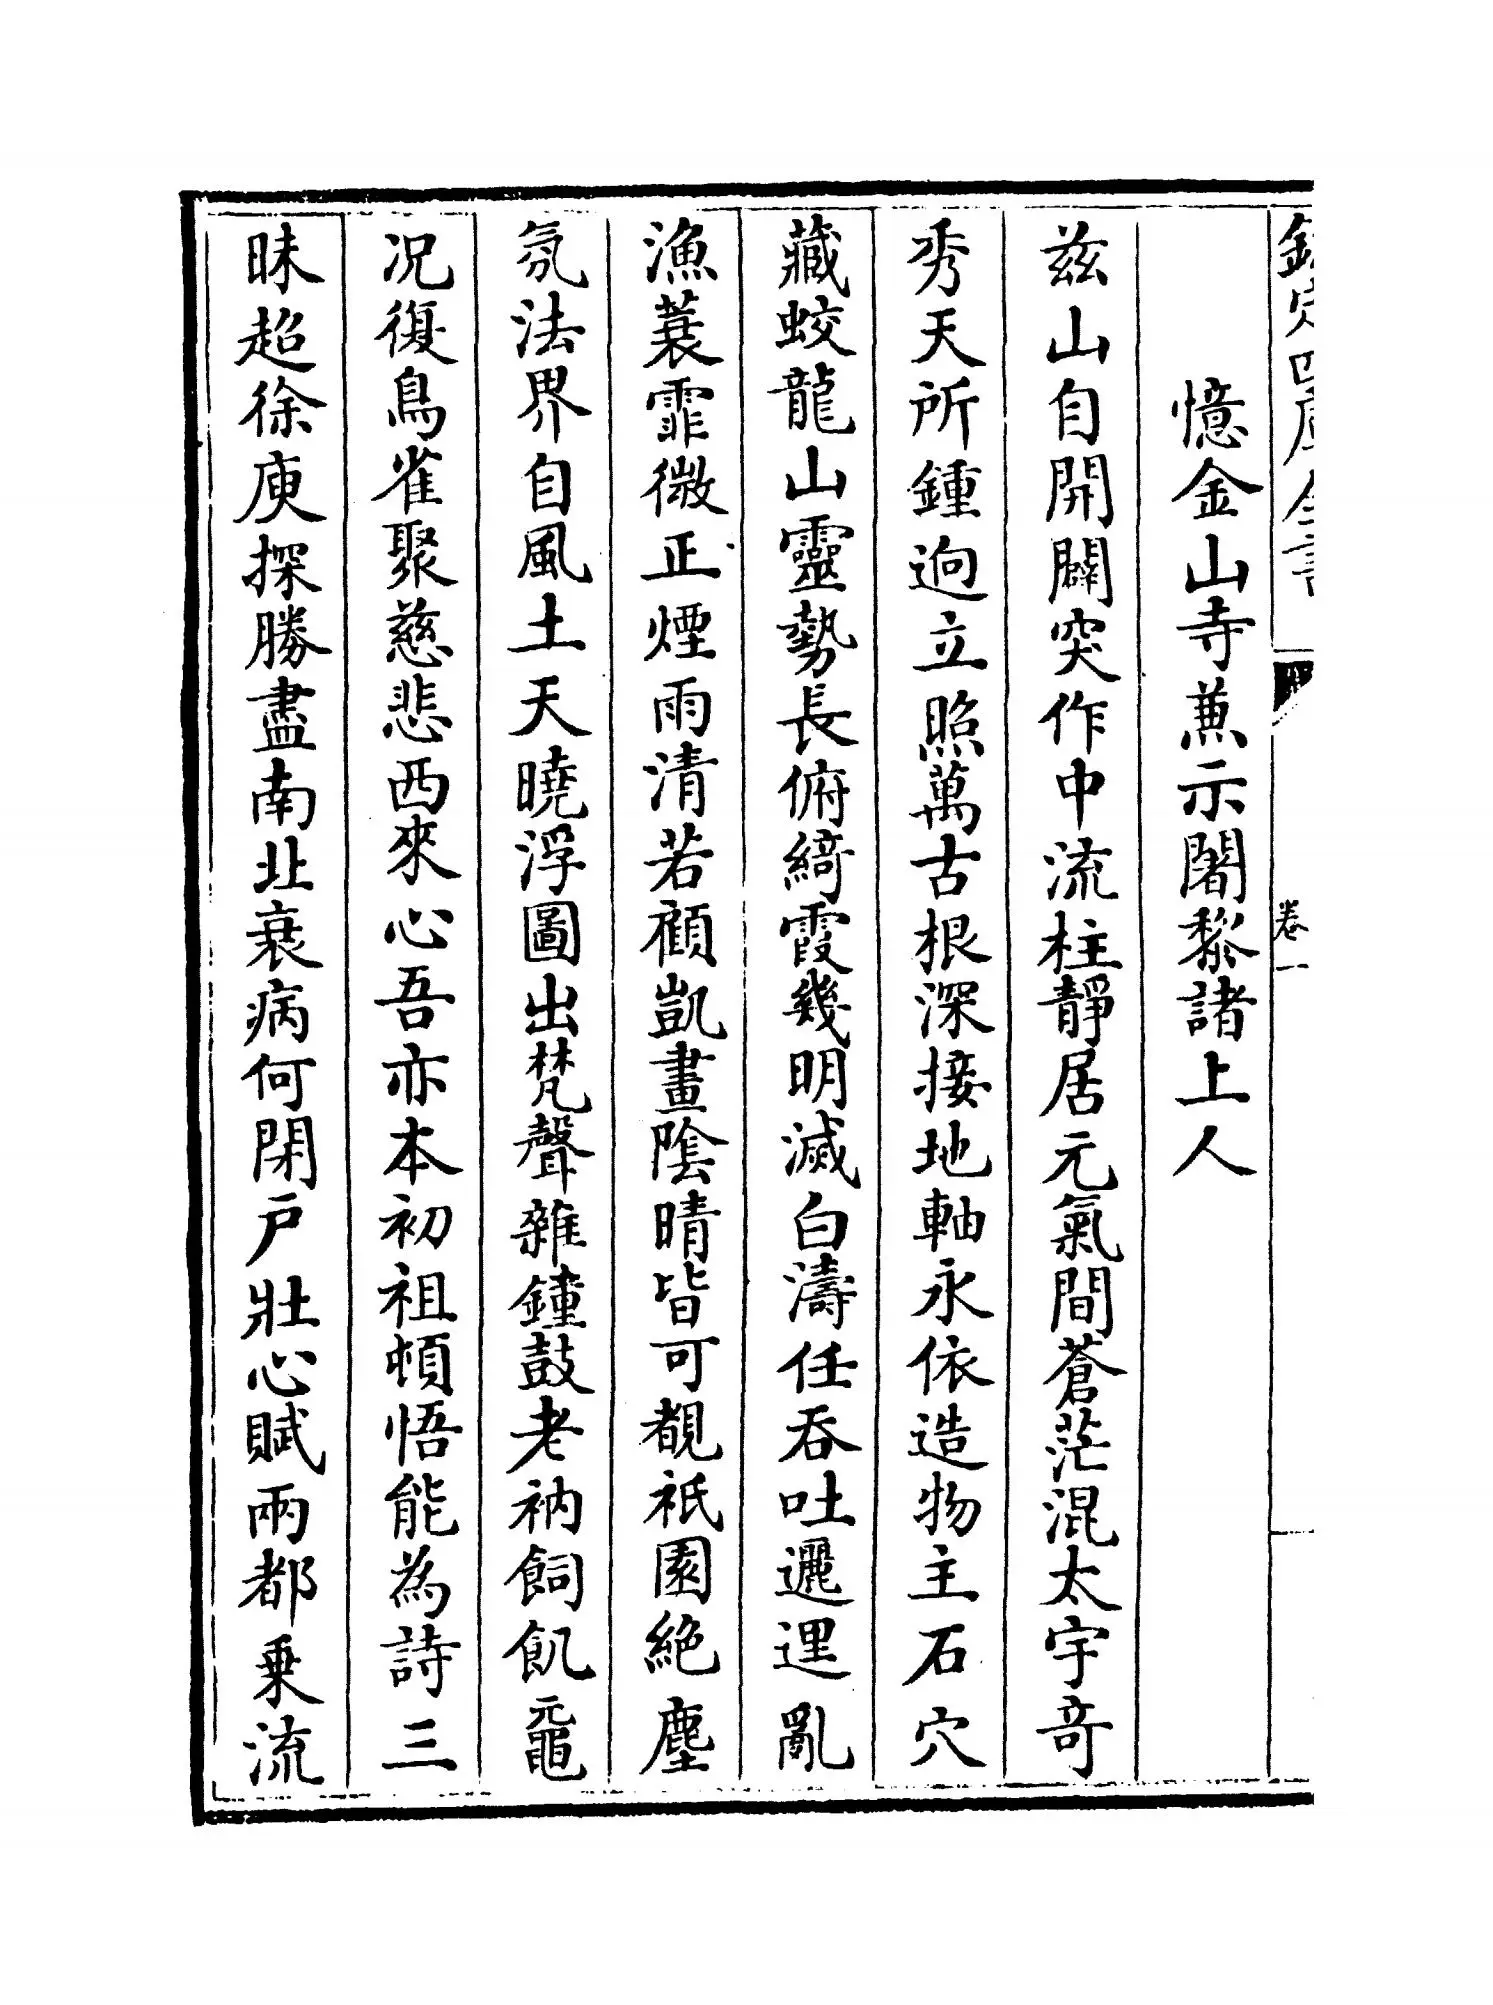 欽定四庫全書
卷一
憶金山寺兼示闍黎諸上人
茲山自開闢突作中流柱靜居元氣間蒼茫混太宇竒
秀天所鍾逈立照萬古根深接地軸永依造物主石穴
藏蛟龍山靈勢長俯綺霞幾明滅白濤任吞吐邐逦亂
漁蓑霏微正煙雨清若顧凱畫隂晴皆可覩祇園絶塵
氛法界自風土天曉浮圖出梵聲雜鐘鼓老衲飼飢黿
况復鳥雀聚慈悲西來心吾亦本初祖頓悟能為詩三
昧超徐庾探勝盡南北衰病何閑戸壯心賦兩都乗流